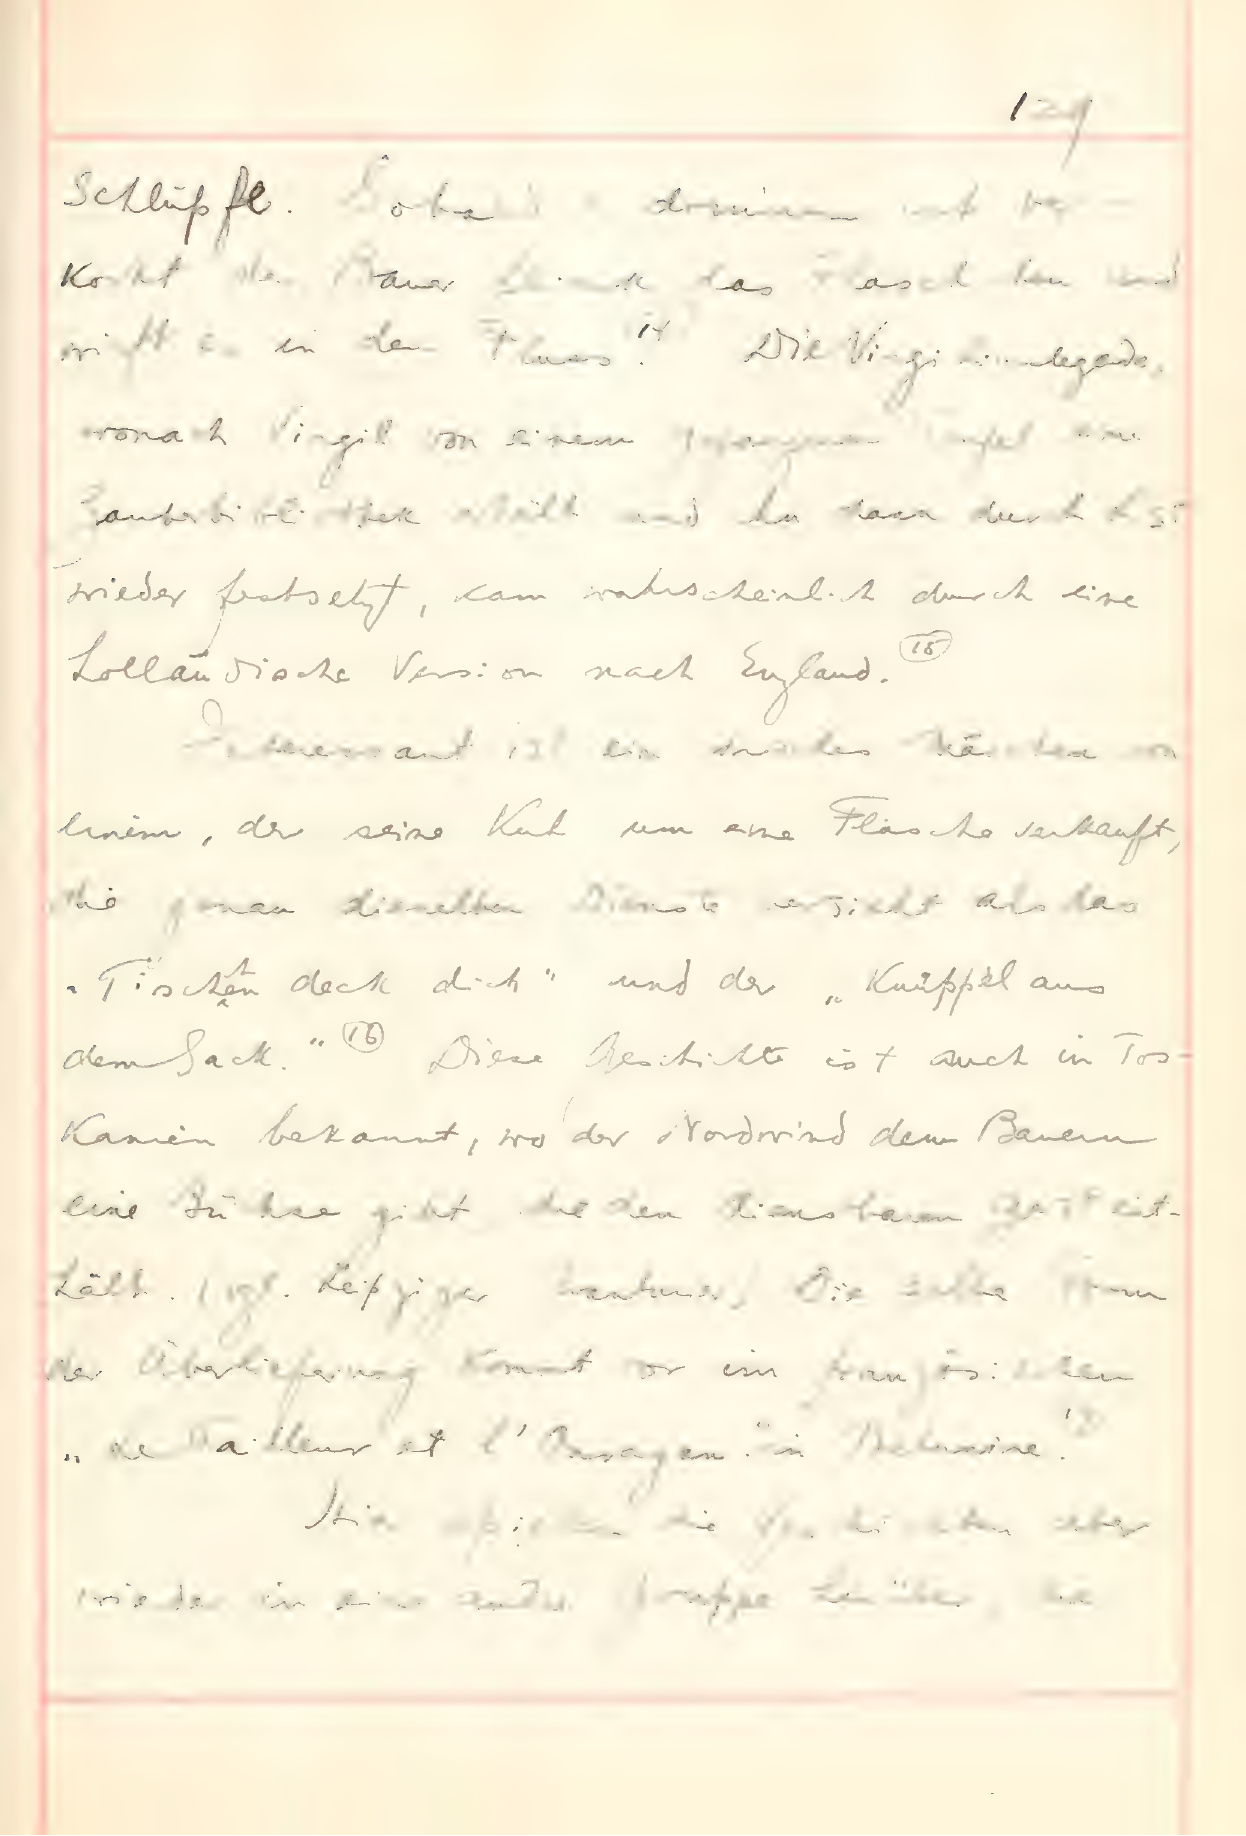 129
Schlüpfe. Sobald er darinnen ist ver-
korkt der Bauer das Fläschchen und
wirft es in den Fluss.14 Die Virgiliuslegende,
wonach Virgil von einem gefangenen Teufel eine
Zauberbibliothek erhält und ihn dann durch List
wieder festsetzt, kam wahrscheinlich durch eine
holländische Version nach England. (15)
Interessant ist ein irisches Märchen von
einem, der seine Kuh um eine Flasche verkauft,
die genau dieselben Dienste verzieht als das
„Tischchen deck dich" und der „Knüppel aus
dem Sack." (16) Diese Geschichte ist auch in Tos-
kanien bekannt, wo der Nordwind dem Bauern
eine Büchse gibt die den dienstbaren Geist ent-
hält. (vgl. Leipziger) Die selbe Form
der Überlieferung kommt vor im französischen
„Le Tailleur et l'Ouragan" in Melusine.17
Hier spielen die Geschichten aber
wieder in eine andre Gruppe hinüber, die